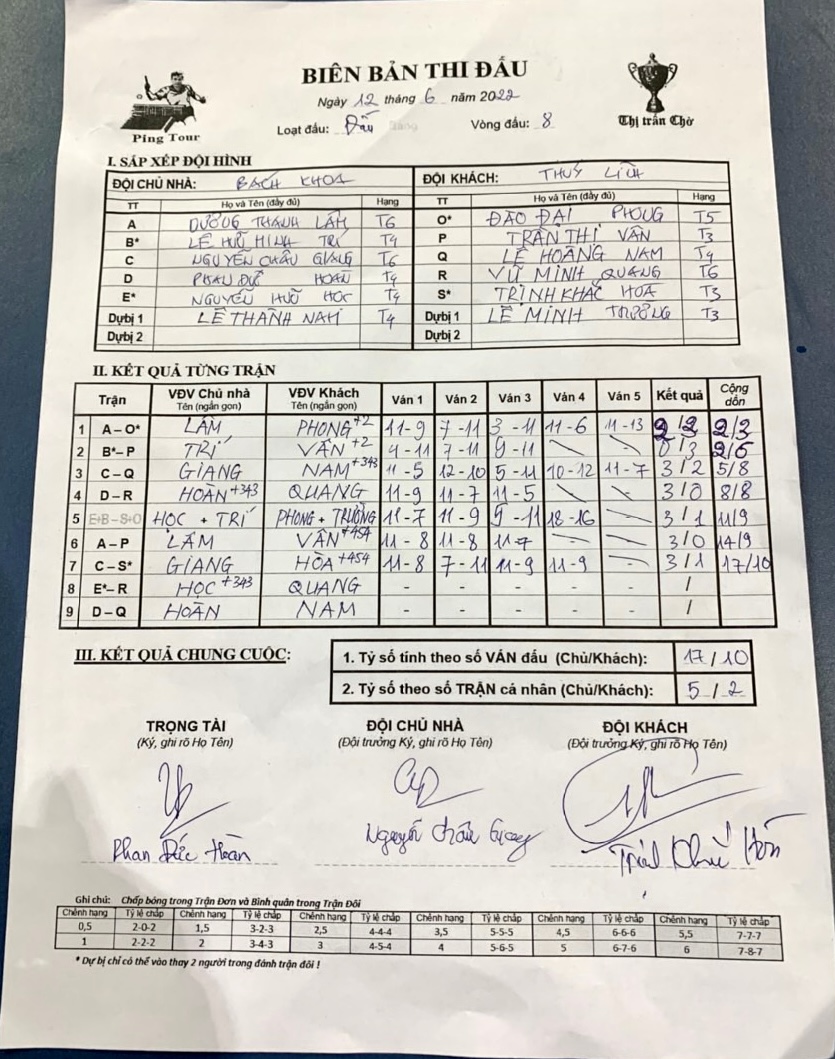 BIÊN BẢN THI ĐẤU
Ngày 12 tháng 6 năm 2022
Ping Tour
Loạt đấu: Đấu Bảng
Vòng đấu: 8
Thị trấn Chờ
I. SẮP XẾP ĐỘI HÌNH
ĐỘI CHỦ NHÀ: BÁCH KHOA ĐỘI KHÁCH: THUỲ LINH
TT Họ và Tên (đầy đủ) Hạng TT Họ và Tên (đầy đủ) Hạng
A DƯƠNG THANH LÂM T6 O* ĐÀO ĐẠI PHONG T5
B* LÊ HỮU MINH TRÍ T4 P TRẦN THỊ VÂN T3
C NGUYỄN CHÂU GIANG T6 Q LÊ HOÀNG NAM T4
D PHAN ĐỨC HOÀN T4 R VŨ MINH QUANG T6
E* NGUYỄN HỮU HỌC T4 S* TRỊNH KHẮC HOÀ T3
Dự bị 1 LÊ THÀNH NAM T4 Dự bị 1 LÊ MINH TRƯỜNG T3
Dự bị 2 Dự bị 2
II. KẾT QUẢ TỪNG TRẬN
Trận VĐV Chủ nhà Tên (ngắn gọn) VĐV Khách Tên (ngắn gọn) Ván 1 Ván 2 Ván 3 Ván 4 Ván 5 Kết quả Cộng dồn
1 A – O* LÂM PHONG+2 11-9 7-11 3-11 11-6 11-13 2/3 2/3
2 B*– P TRÍ VÂN+2 4-11 7-11 9-11 0/3 2/6
3 C – Q GIANG NAM+343 11-5 12-10 5-11 10-12 11-7 3/2 5/8
4 D – R HOÀN+343 QUANG 11-9 11-7 11-5 3/0 8/8
5 E+B – S+O HỌC + TRÍ PHONG + TRƯỜNG 11-7 11-9 9-11 18-16 3/1 11/9
6 A – P LÂM VÂN+454 11-8 11-8 11-7 3/0 14/9
7 C – S* GIANG HÒA+454 11-8 7-11 11-9 11-9 3/1 17/10
8 E*– R HỌC+343 QUANG - - - - - /
9 D – Q HOÀN NAM - - - - - /
III. KẾT QUẢ CHUNG CUỘC:
1. Tỷ số tính theo số VÁN đấu (Chủ/Khách): 17/10
2. Tỷ số theo số TRẬN cá nhân (Chủ/Khách): 5/2
TRỌNG TÀI ĐỘI CHỦ NHÀ ĐỘI KHÁCH
(Ký, ghi rõ Họ Tên) (Đội trưởng Ký, ghi rõ Họ Tên) (Đội trưởng Ký, ghi rõ Họ Tên)
Phan Đức Hoàn Nguyễn Châu Giang
Ghi chú: Chấp bóng trong Trận Đơn và Bình quân trong Trận Đôi
Chênh hạng Tỷ lệ chấp Chênh hạng Tỷ lệ chấp Chênh hạng Tỷ lệ chấp Chênh hạng Tỷ lệ chấp Chênh hạng Tỷ lệ chấp Chênh hạng Tỷ lệ chấp
0,5 2-0-2 1,5 3-2-3 2,5 4-4-4 3,5 5-5-5 4,5 6-6-6 5,5 7-7-7
1 2-2-2 2 3-4-3 3 4-5-4 4 5-6-5 5 6-7-6 6 7-8-7
* Dự bị chỉ có thể vào thay 2 người trong đánh trận đôi !